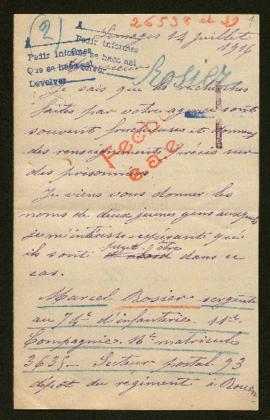 26538 et 39
(2)
Limoges 14 juillet
1916
Pedir informes
Pedir informes
Que se haga así
Devolver
Rosier
Je sais que les recherches
faites par votre agence sont
souvent fructueuses et
des renseignements précis sur
des prisonniers
Je viens vous donner les
noms de deux jeunes gens auxquels
je m'intéresse espérant que
ils sont dans ce
cas.
Marcel Rosier sergent
au 74e d'infanterie 11e
Compagnie No matricule
3635 Secteur postal 93
dépôt du régiment à Rouen